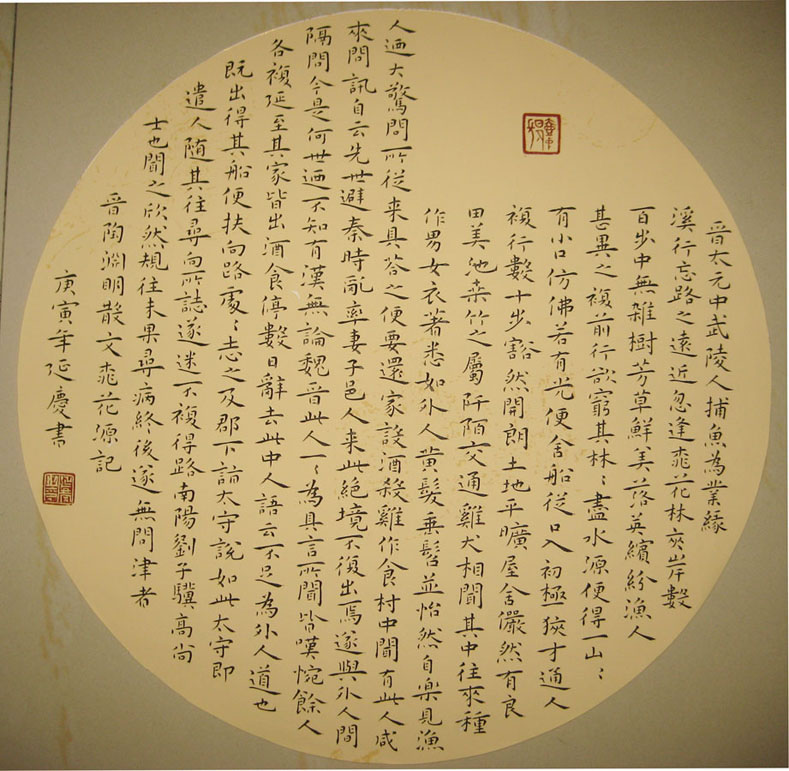 晉太元中武陵人捕魚為業緣
溪行忘路之遠近忽逢桃花林夾岸數
百步中無雜樹芳草鮮美落英繽紛漁人
甚異之複前行欲窮其林〻盡水源便得一山〻
有小口仿佛若有光便舍船從口入初極狹才通人
複行數十步豁然開朗土地平曠屋舍儼然有良
田美池桑竹之屬阡陌交通雞犬相聞其中往來種
作男女衣著悉如外人黃髮垂髫並怡然自樂見漁
人迺大驚問所從来具答之便要還家設酒殺雞作食村中聞有此人咸
來問訊自云先世避秦時亂率妻子邑人来此絕境不復出焉遂與外人間
隔問今是何世迺不知有漢無論魏晉此人一〻為具言所聞皆嘆惋餘人
各複延至其家皆出酒食停數日辭去此中人語云不足為外人道也
既出得其船便扶向路處〻志之及郡下詣太守說如此太守即
遣人随其往尋向所誌遂迷不複得路南陽劉子驥高尚
士也聞之欣然規往未果尋病終後遂無問津者
晉陶淵明散文桃花源記
庚寅年延慶書